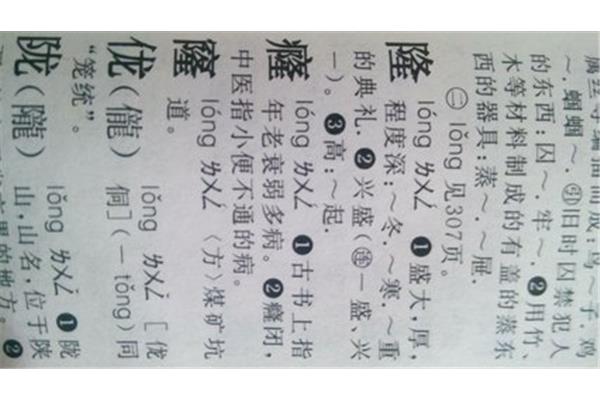 属丝等编插而成:鸟~子.鸡
~.蝈蝈~.(引)旧时囚禁犯人
的东西:囚~.牢~.❷用竹、
木等材料制成的有盖的蒸东
西的器具:蒸~.~屉.
㊁ lǒng 见307页。
隆 lóng ㄌㄨㄥˊ ❶盛大,厚,
程度深:~冬.~寒.~重
的典礼.❷兴盛(连—盛、兴
—)。❸高:~起.
癃 lóng ㄌㄨㄥˊ ❶古书上指
年老衰弱多病。❷癃闭,
中医指小便不通的病。
窿 lóng ㄌㄨㄥˊ 〈方〉煤矿坑
道。
㑇(儱) lǒng ㄌㄨㄥˇ [㑇
侗](—tǒng)同
“笼统”。
陇(隴) lǒng ㄌㄨㄥˇ ❶陇
山,山名,位于陕
界的地方。❷